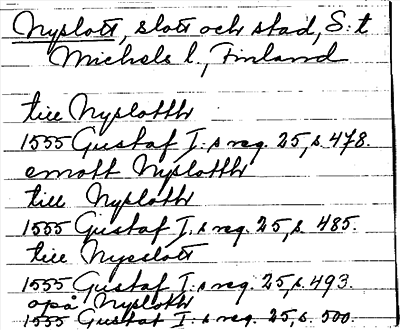 Nyslott, slott och stad, S:t
Michels l., Finland
till Nyslotth
1555 Gustaf I:s reg. 25, s. 478.
emott Nyslotth
till Nysloth
1555 Gustaf I:s reg. 25, s. 485.
till Nysslott
1555 Gustaf I:s reg. 25, s. 493.
opå Nysloth
1555 Gustaf I:s reg. 25, s. 500.